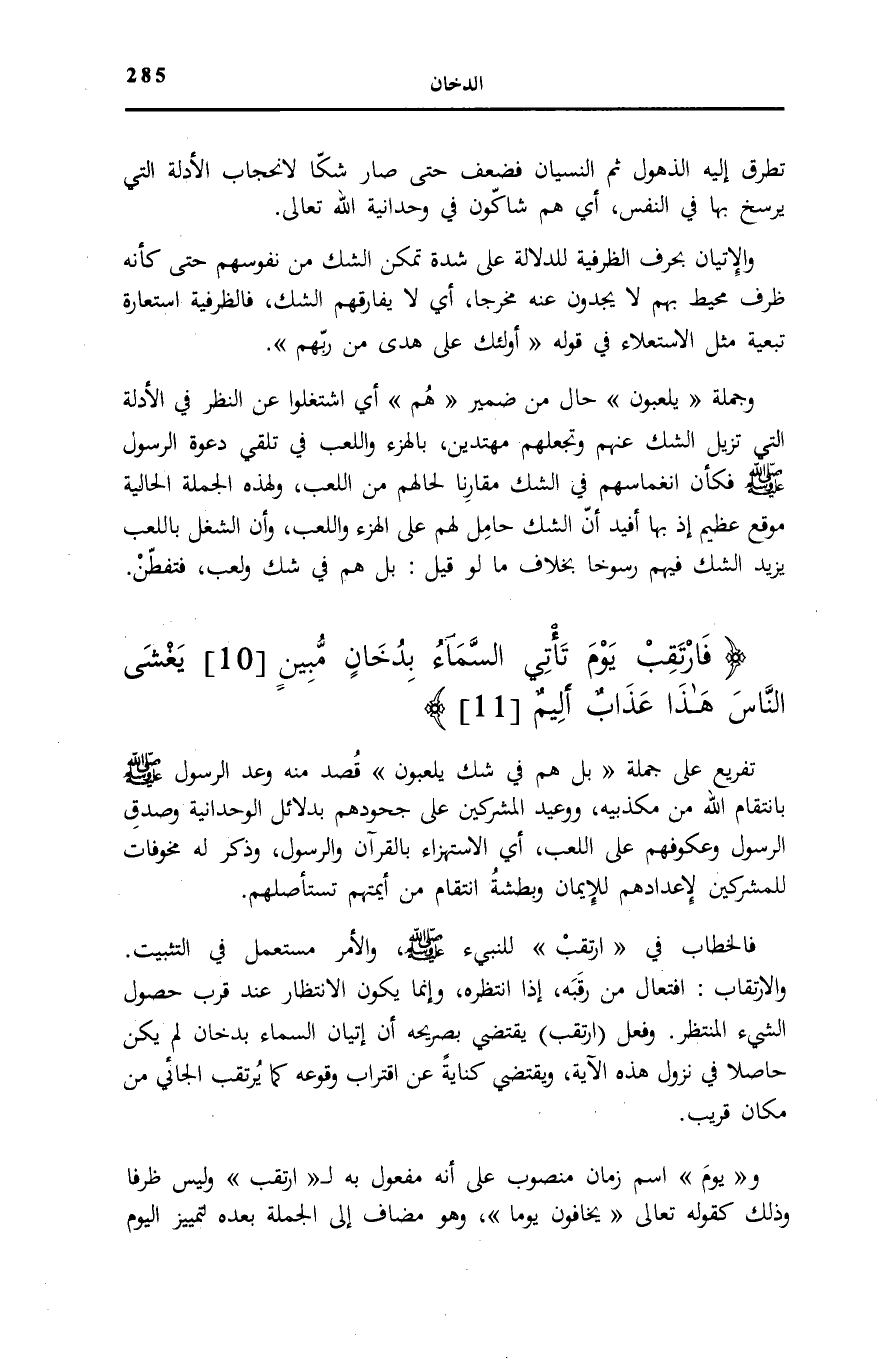 285
الدخان
تطرق إليه الذهول ثم النسيان فضعف حتى صار شكّا لانحجاب الأدلة التي
يرسخ بها في النفس، أي هم شاكّون في وحدانية الله تعالى.
والإتيان بحرف الظرفية للدلالة على شدة تمكن الشك من نفوسهم حتى كأنه
ظرف محيط بهم لا يجدون عنه مخرجا، أي لا يفارقهم الشك، فالظرفية استعارة
تبعية مثل الاستعلاء في قوله « أولئك على هدى من ربّهم ».
وجملة « يلعبون » حال من ضمير « هُم » أي اشتغلوا عن النظر في الأدلة
التي تزيل الشك عنهم وتجعلهم مهتدين، بالهزء واللعب في تلقي دعوة الرسول
ﷺ فكأن انغماسهم في الشك مقارِنا لحالهم من اللعب، ولهذه الجملة الحالية
موقع عظيم إذ بها أفيد أنّ الشك حامِل لهم على الهزء واللعب، وأن الشغل باللعب
يزيد الشك فيهم رسوخا بخلاف ما لو قيل : بل هم في شك ولعب، فتفطّنْ.
﴿ فَارْتَقِبْ يَوْمَ تَأْتِي السَّمَآءُ بِدُخَانٍ مُّبِينٍ [10] يَغْشَى
النَّاسَ هَـٰذَا عَذَابٌ أَلِيمٌ [11] ﴾
تفريع على جملة « بل هم في شك يلعبون » قُصد منه وعد الرسول ﷺ
بانتقام الله من مكذبيه، ووعيد المشركين على جحودهم بدلائل الوحدانية وصدقِ
الرسول وعكوفهم على اللعب، أي الاستهزاء بالقرآن والرسول، وذكر له مخوفات
للمشركين لإعدادهم للإيمان وبطشةُ انتقام من أيمتهم تستأصلهم.
فالخطاب في « ارتقبْ » للنبيء ﷺ، والأمر مستعمل في التثبيت.
والارتقاب : افتعال من رقَبَه، إذا انتظره، وإنما يكون الانتظار عند قرب حصول
الشيء المنتظر. وفعل (ارتقب) يقتضي بصريحه أن إتيان السماء بدخان لم يكن
حاصلا في نزول هذه الآية، ويقتضي كنايةً عن اقتراب وقوعه كما يُرتقب الجائي من
مكان قريب.
و« يومَ » اسم زمان منصوب على أنه مفعول به لـ« ارتقب » وليس ظرفا
وذلك كقوله تعالى « يخافون يوما »، وهو مضاف إلى الجملة بعده لتمييز اليوم